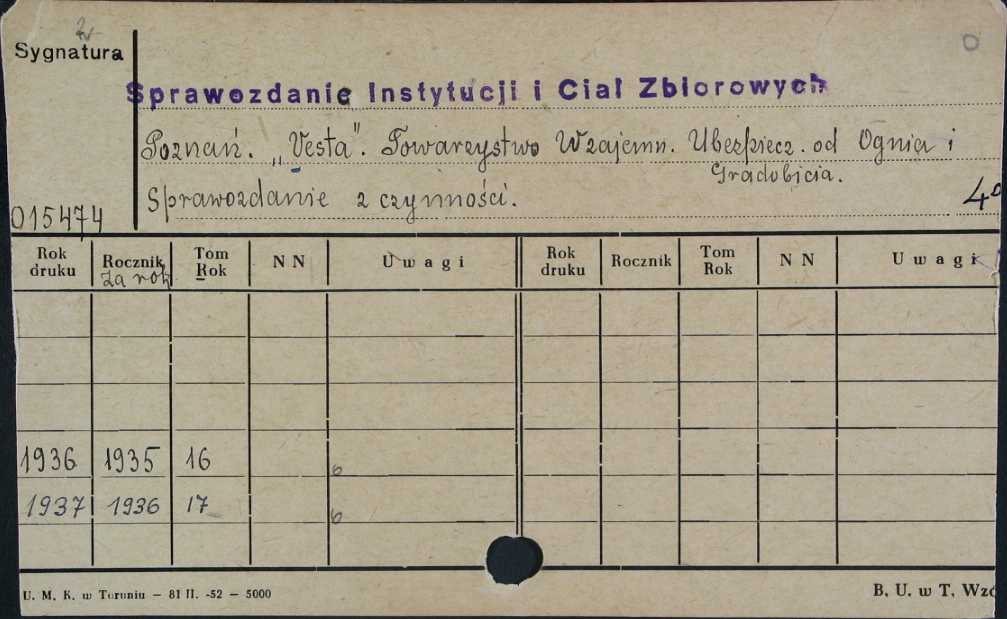 Sygnatura
Sprawozdanie Instytucji i Ciał Zbiorowych
Poznań. „Vesta". Towarzystwo Wzajemn. Ubezpiecz. od Ognia i
Gradobicia.
Sprawozdanie z czynności.
4°
015474
Rok druku Rocznik Tom Rok N N Uwagi Rok druku Rocznik Tom Rok N N Uwagi
za rok
1936 1935 16 6
1937 1936 17 6
U. M. K. w Toruniu — 81 II. -52 — 5000 B. U. w T. Wzó